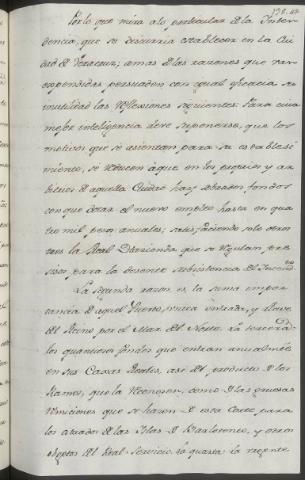 Por lo que mira a lo particular de la Inten-
dencia, que se discurria establecer en la Ciu-
dad de Veracruz; amas de las razones que van
expendidas, persuaden con igual eficacia su
inutilidad las reflexiones siguientes: Para cuia
mejor inteligencia deve suponerse, que los
motivos que se asientan para su estableci-
miento, se reducen à que en los propios y ar-
bitrios de aquella Ciudad hay sobrados fondos
con que dotar el nuevo empleo hasta en qua-
tro mil pesos anuales; satisfaciendo solo otros
tres la Real Hacienda que se regulan
para la decente subsistencia del
La segunda razon es, la suma impor-
tancia de aquel Puerto, unica entrada, y llave
del Reino por el Mar del Norte. La tercera
los quantiosos fondos que entran anualmente
en sus Caxas Reales, asi del producto de los
Ramos, que la reconocen, como de las gruesas
remisiones que se hacen de esta Corte para
los situados de las Islas de Barlovento, y otros
objetos del Real Servicio. La quarta la urgente